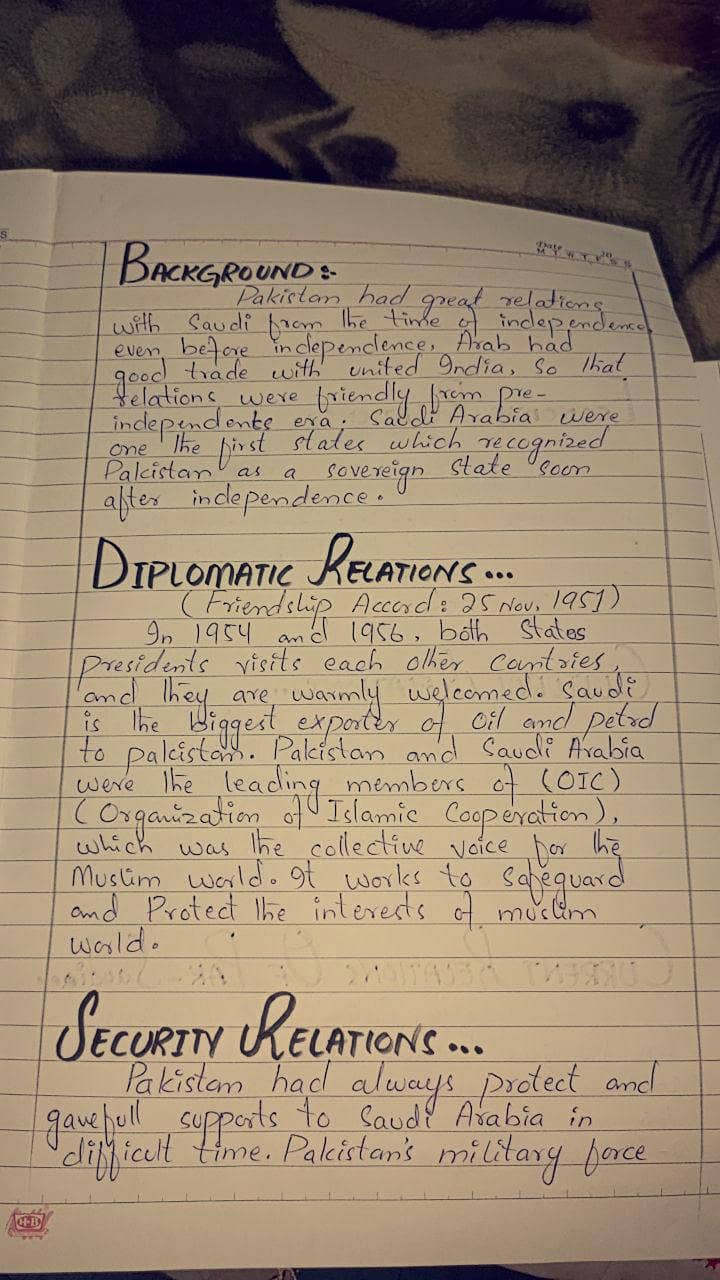 Date 20
M T W T F S S
BACKGROUND :-
Pakistan had great relations
with Saudi from the time of independence
even before independence, Arab had
good trade with united India, so that
relations were friendly from pre-
independente era. Saudi Arabia were
one the first states which recognized
Pakistan as a sovereign state soon
after independence.
DIPLOMATIC RELATIONS...
(Friendship Accord: 25 Nov, 1951)
In 1954 and 1956, both States
presidents visits each other countries,
and they are warmly welcomed. Saudi
is the biggest exporter of oil and petrol
to pakistan. Pakistan and Saudi Arabia
were the leading members of (OIC)
(Organization of Islamic Cooperation),
which was the collective voice for the
Muslim world. It works to safeguard
and Protect the interests of muslim
world.
SECURITY RELATIONS...
Pakistan had always protect and
gave full supports to Saudi Arabia in
difficult time. Pakistan's military force
HB